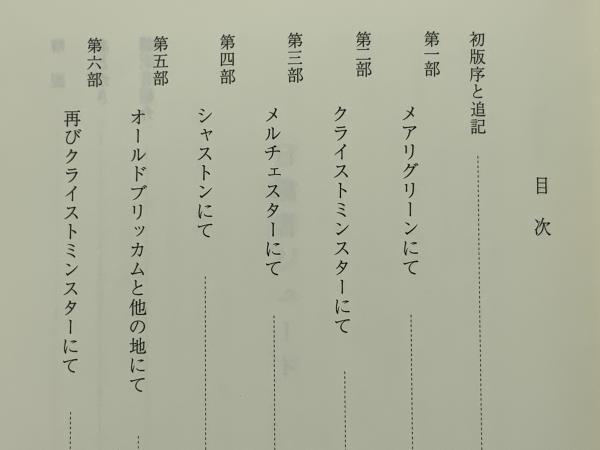 目次
初版序と追記
第一部
メアリグリーンにて
第二部
クライストミンスターにて
第三部
メルチェスターにて
第四部
シャストンにて
第五部
オールドブリッカムと他の地にて
第六部
再びクライストミンスターにて